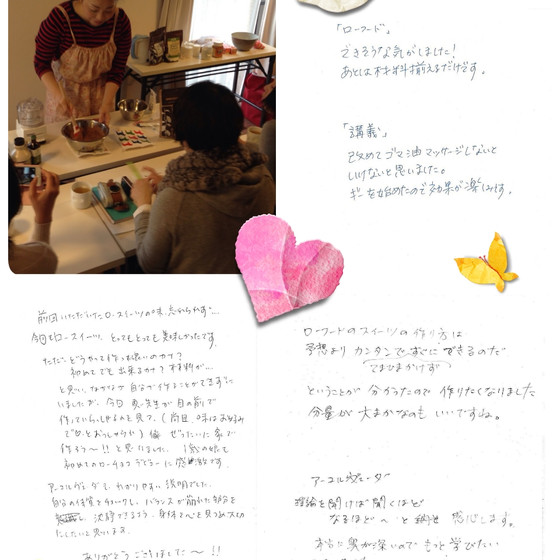 「ローフード」
できそうな気がしました！
あとは材料揃えるだけです。
「講義」
改めてゴマ油マッサージしないと
いけないと思いました。
ギーを始めたので効果が楽しみです。
前回いただいたロースイーツの味、忘れられず…
今回もロースイーツ、とってもとっても美味しかったです。
ただ、どうやって作ったら良いのカナ？
初めてでも出来るカナ？材料が…
と思い、なかなか自分で作ることができずに
いましたが、今日 先生が目の前で
作っていらっしゃるのを見て、(
でOKとおっしゃり) 絶対に家で
作ろう〜!! と思いました。
初めてのローチョコ
アーユルヴェーダも、わかりやすい説明でした。
自分の体質をチェックし、バランスが崩れた部分を
できるよう、身体と心を見つめ
にしたいと思います。
ありがとうございました〜!!
ローフードのスイーツの作り方は
予想より カンタンですぐにできるのだ
てまひまかけず
ということが 分かったので 作りたくなりました
分量が大まかなのも いいですね。
アーユルヴェーダ
理論を聞けば聞くほど
なるほど〜 と 感心します。
本当に奥が深いので もっと学びたい